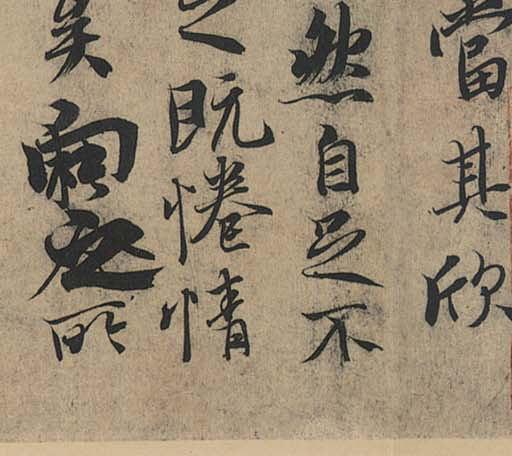 當其欣
然自足不
之既惓情
矣向之所